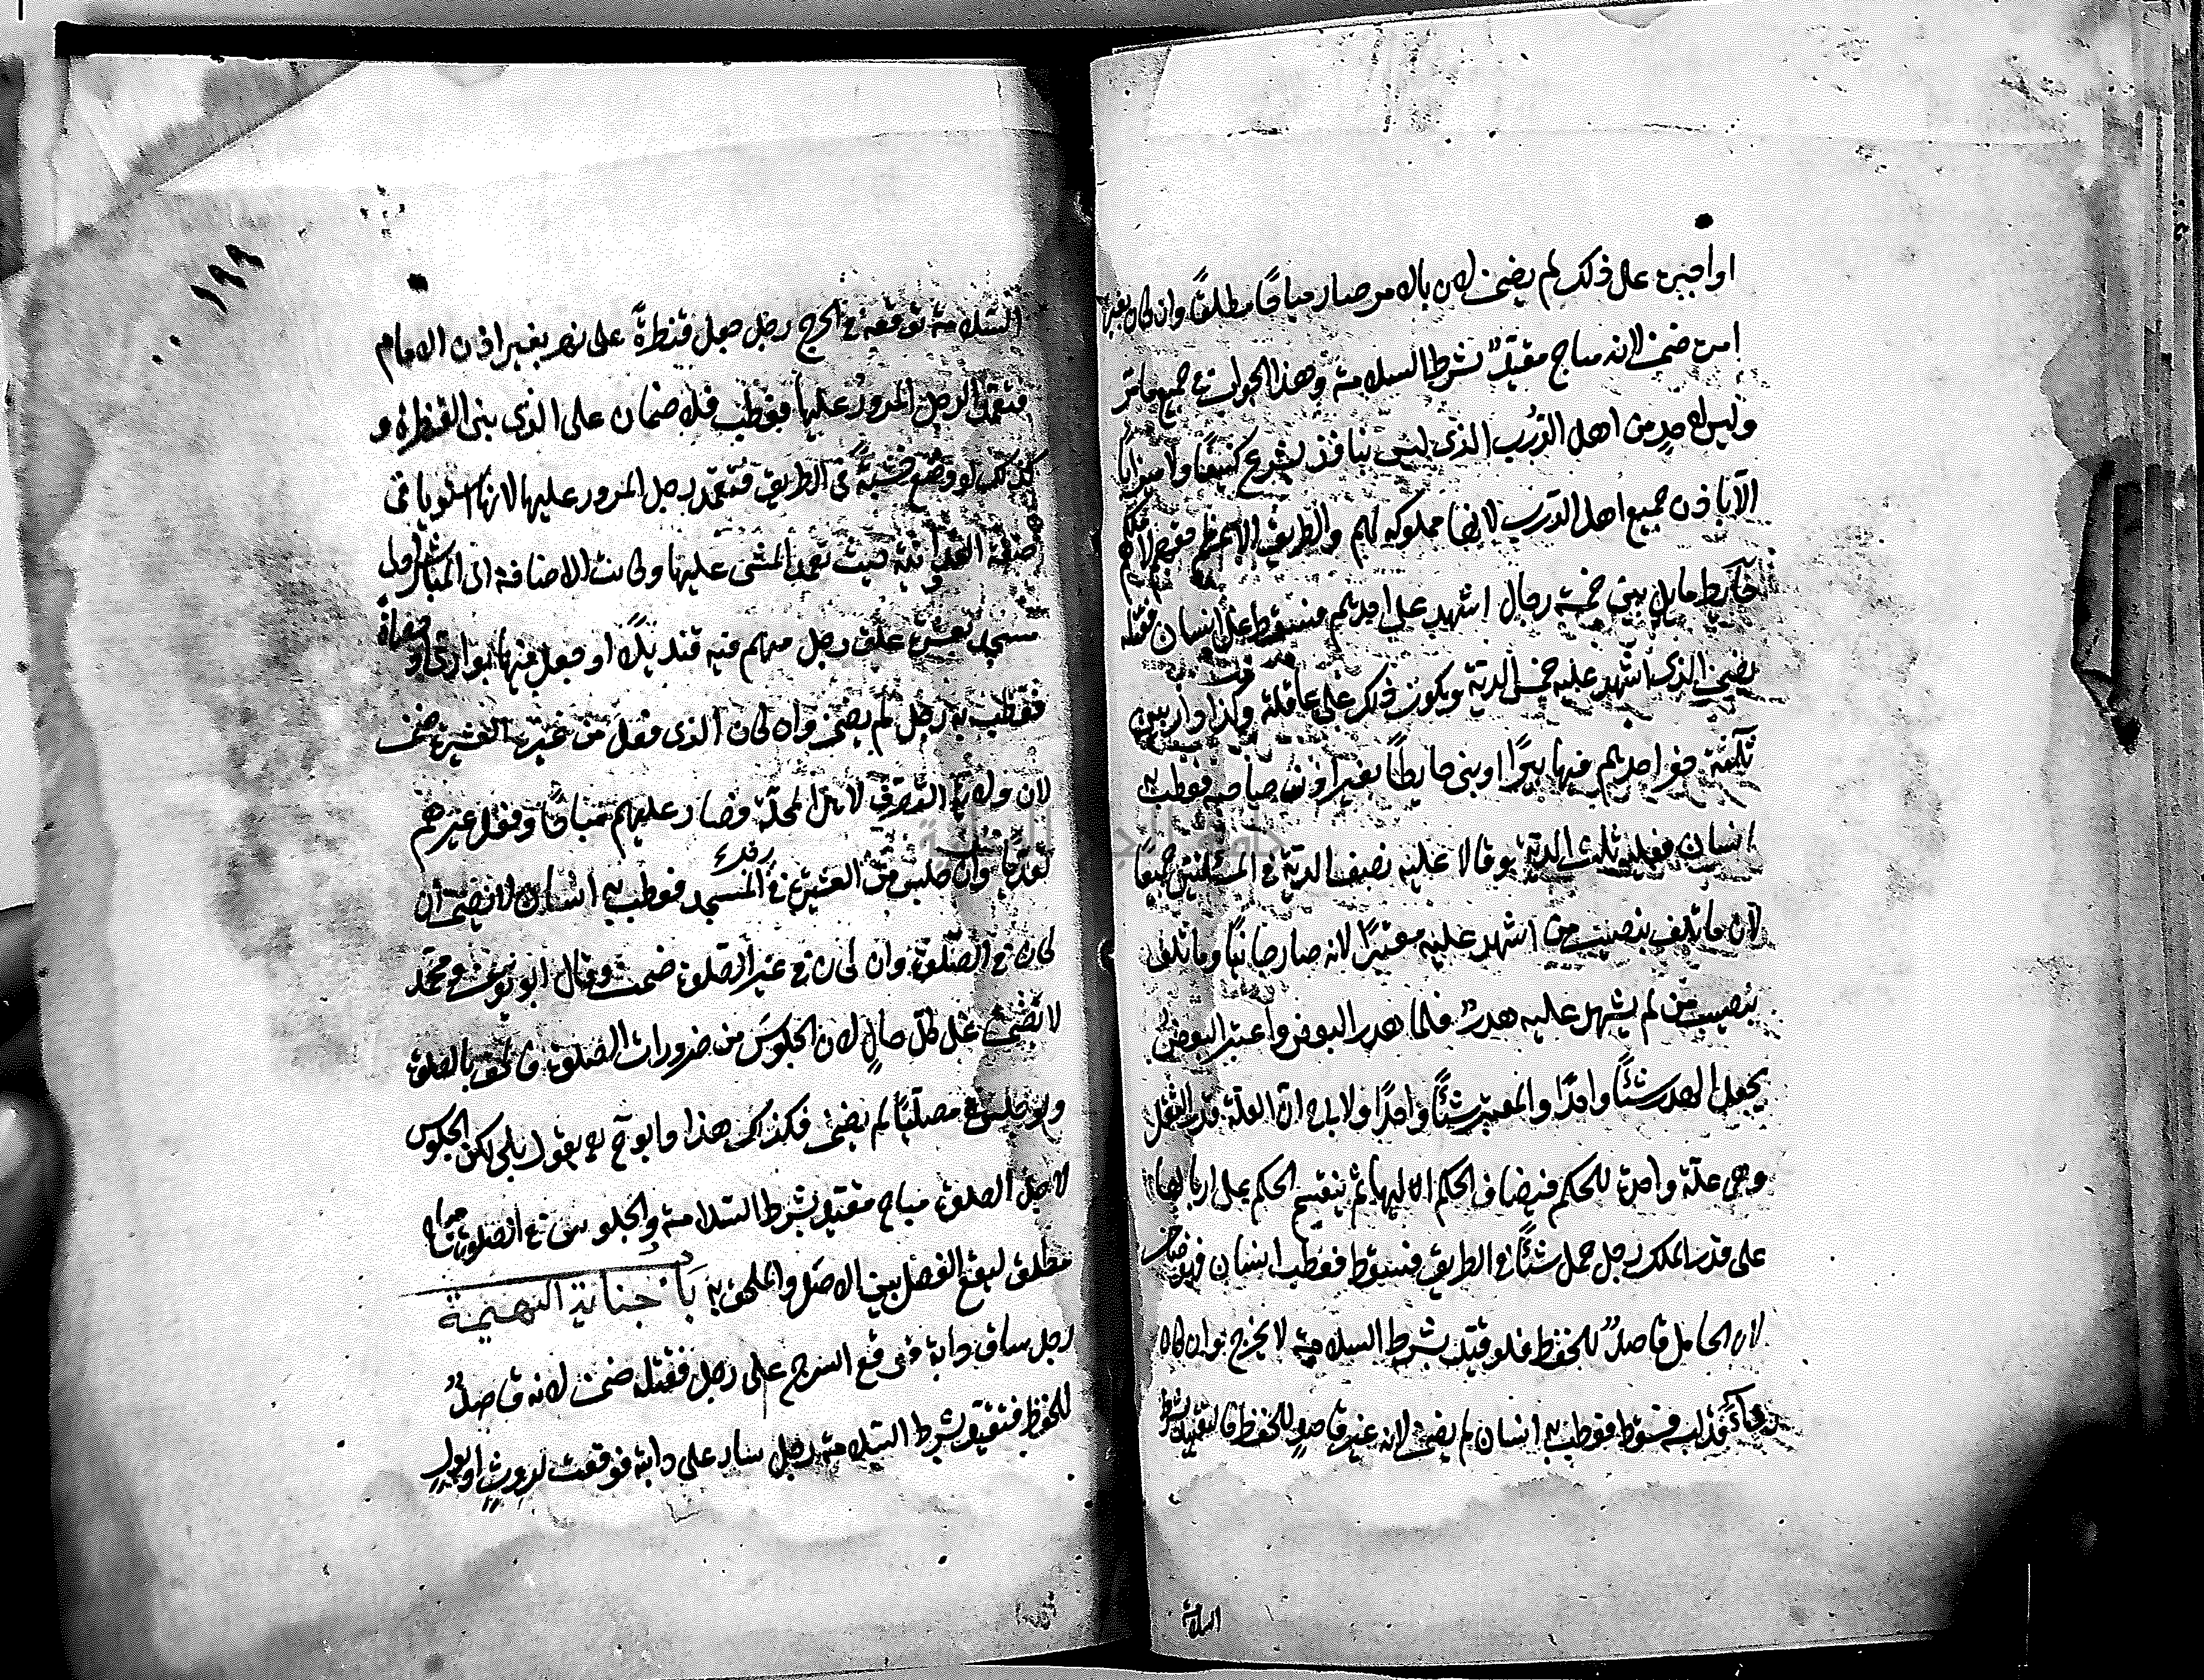 او اجبره على ذلك لم يضمن لان بالامر صار مباحًا مطلقًا وان كان بغير
امره ضمن لانه مباح مقيد بشرط السلامة وهذا الجواب في جميع ما مر
وليس لاحد من اهل الدرب الذي ليس بنافذ يشرع كنيفًا ولا ميزابًا
الا باذن جميع اهل الدرب لانها مملوكه لهم والطريق الاعظم
حائط مايل بين خمسة رجال اشهد على احدهم فسقط على انسان فقتله
يضمن الذي اشهد عليه خمس الدية ويكون ذلك على عاقلته وكذا دار بين
ثلثة حفر احدهم فيها بيرًا او بنى حايطًا بغير اذن صاحبه فعطب به
انسان فعليه ثلث الدية وقالا عليه نصف الدية في المسئلتين جميعًا
لان ما تلف بنصيب من اشهد عليه معتبرًا لانه صار جانيًا وما تلف
بنصيب من لم يشهد عليه هدر فلما هدر البعض واعتبر البعض
يجعل الهدر شئًا واحدًا والمعتبر شئًا واحدًا ولابي ح ان العلة قدر الثقل
وهي علة واحدة للحكم فيضاف الحكم اليها ثم ينقسم الحكم على اربابها
على قدر الملك رجل حمل شئًا في الطريق فسقط فعطب انسان فهو ضامن
لان الحامل قاصد للحفظ فلو قيد بشرط السلامة لا يخرج وان كان
رداء قد لبسه فسقط فعطب به انسان لم يضمن لانه غير قاصد للحفظ فالتقييد بشرط
السلامة
١٩٩
السلامة توقعه في الحرج رجل جعل قنطرةً على نهر بغير اذن الامام
فتعمد الرجل المرور عليها فعطب فلا ضمان على الذي بنى القنطرة و
كذلك لو وضع خشبةً في الطريق فتعمد رجل المرور عليها لانها
حيث تعمد المشي عليها وكانت الاضافة الى المباشر اولى
مسجد لعشيرة علق رجل منهم فيه قنديلًا او جعل فيها بواري او حصاة
فعطب به رجل لم يضمن وان كان الذي فعل من غير العشيرة ضمن
لان ولاية التصرف لاهل المحلة فصار عليهم مباحًا وفعل غيرهم
تعديًا وان جلس من العشيرة رجل في المسجد فعطب به انسان لا يضمن ان
كان في الصلوة وان كان في غير الصلوة ضمن وقال ابو يوسف ومحمد
لا يضمن على كل حالٍ لان الجلوس من ضرورات الصلوة فالحق بالصلوة
ولو جلس مصليًا لم يضمن فكذلك هذا وابو ح يقول بلى لكن الجلوس
لاجل الصلوة مباح مقيد بشرط السلامة والجلوس في الصلوة مباح
مطلق ليقع الفصل بين الاصل والملحق به باب جناية البهيمة
رجل ساق دابة فوقع السرج على رجل فقتله ضمن لانه قاصد
للحفظ فتقيد بشرط السلامة رجل سار على دابة فوقفت لروثٍ او بولٍ